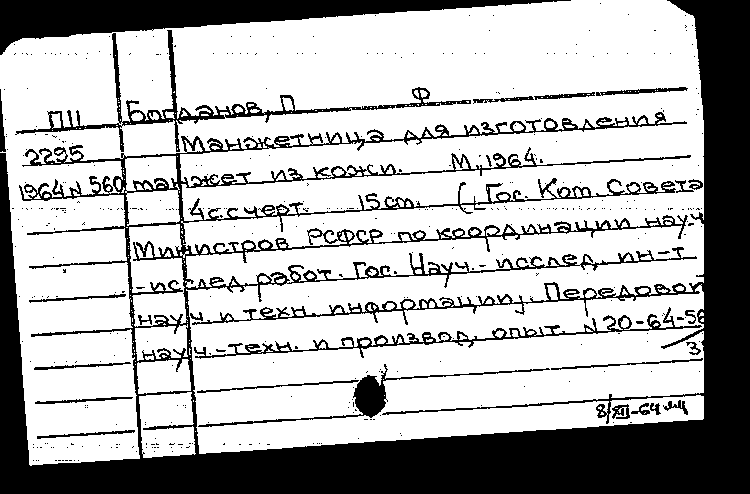 П11 Богданов, П Ф
2295 Манжетница для изготовления
1964 N 560 манжет из кожи. М., 1964.
4с с черт. 15 cm. ( Гос. Ком. Совета
Министров РСФСР по координации науч
-исслед. работ. Гос. Науч.-исслед. ин-т
науч. и техн. информации). Передовой
науч.-техн. и производ. опыт. N 20-64-56
8/XII-64